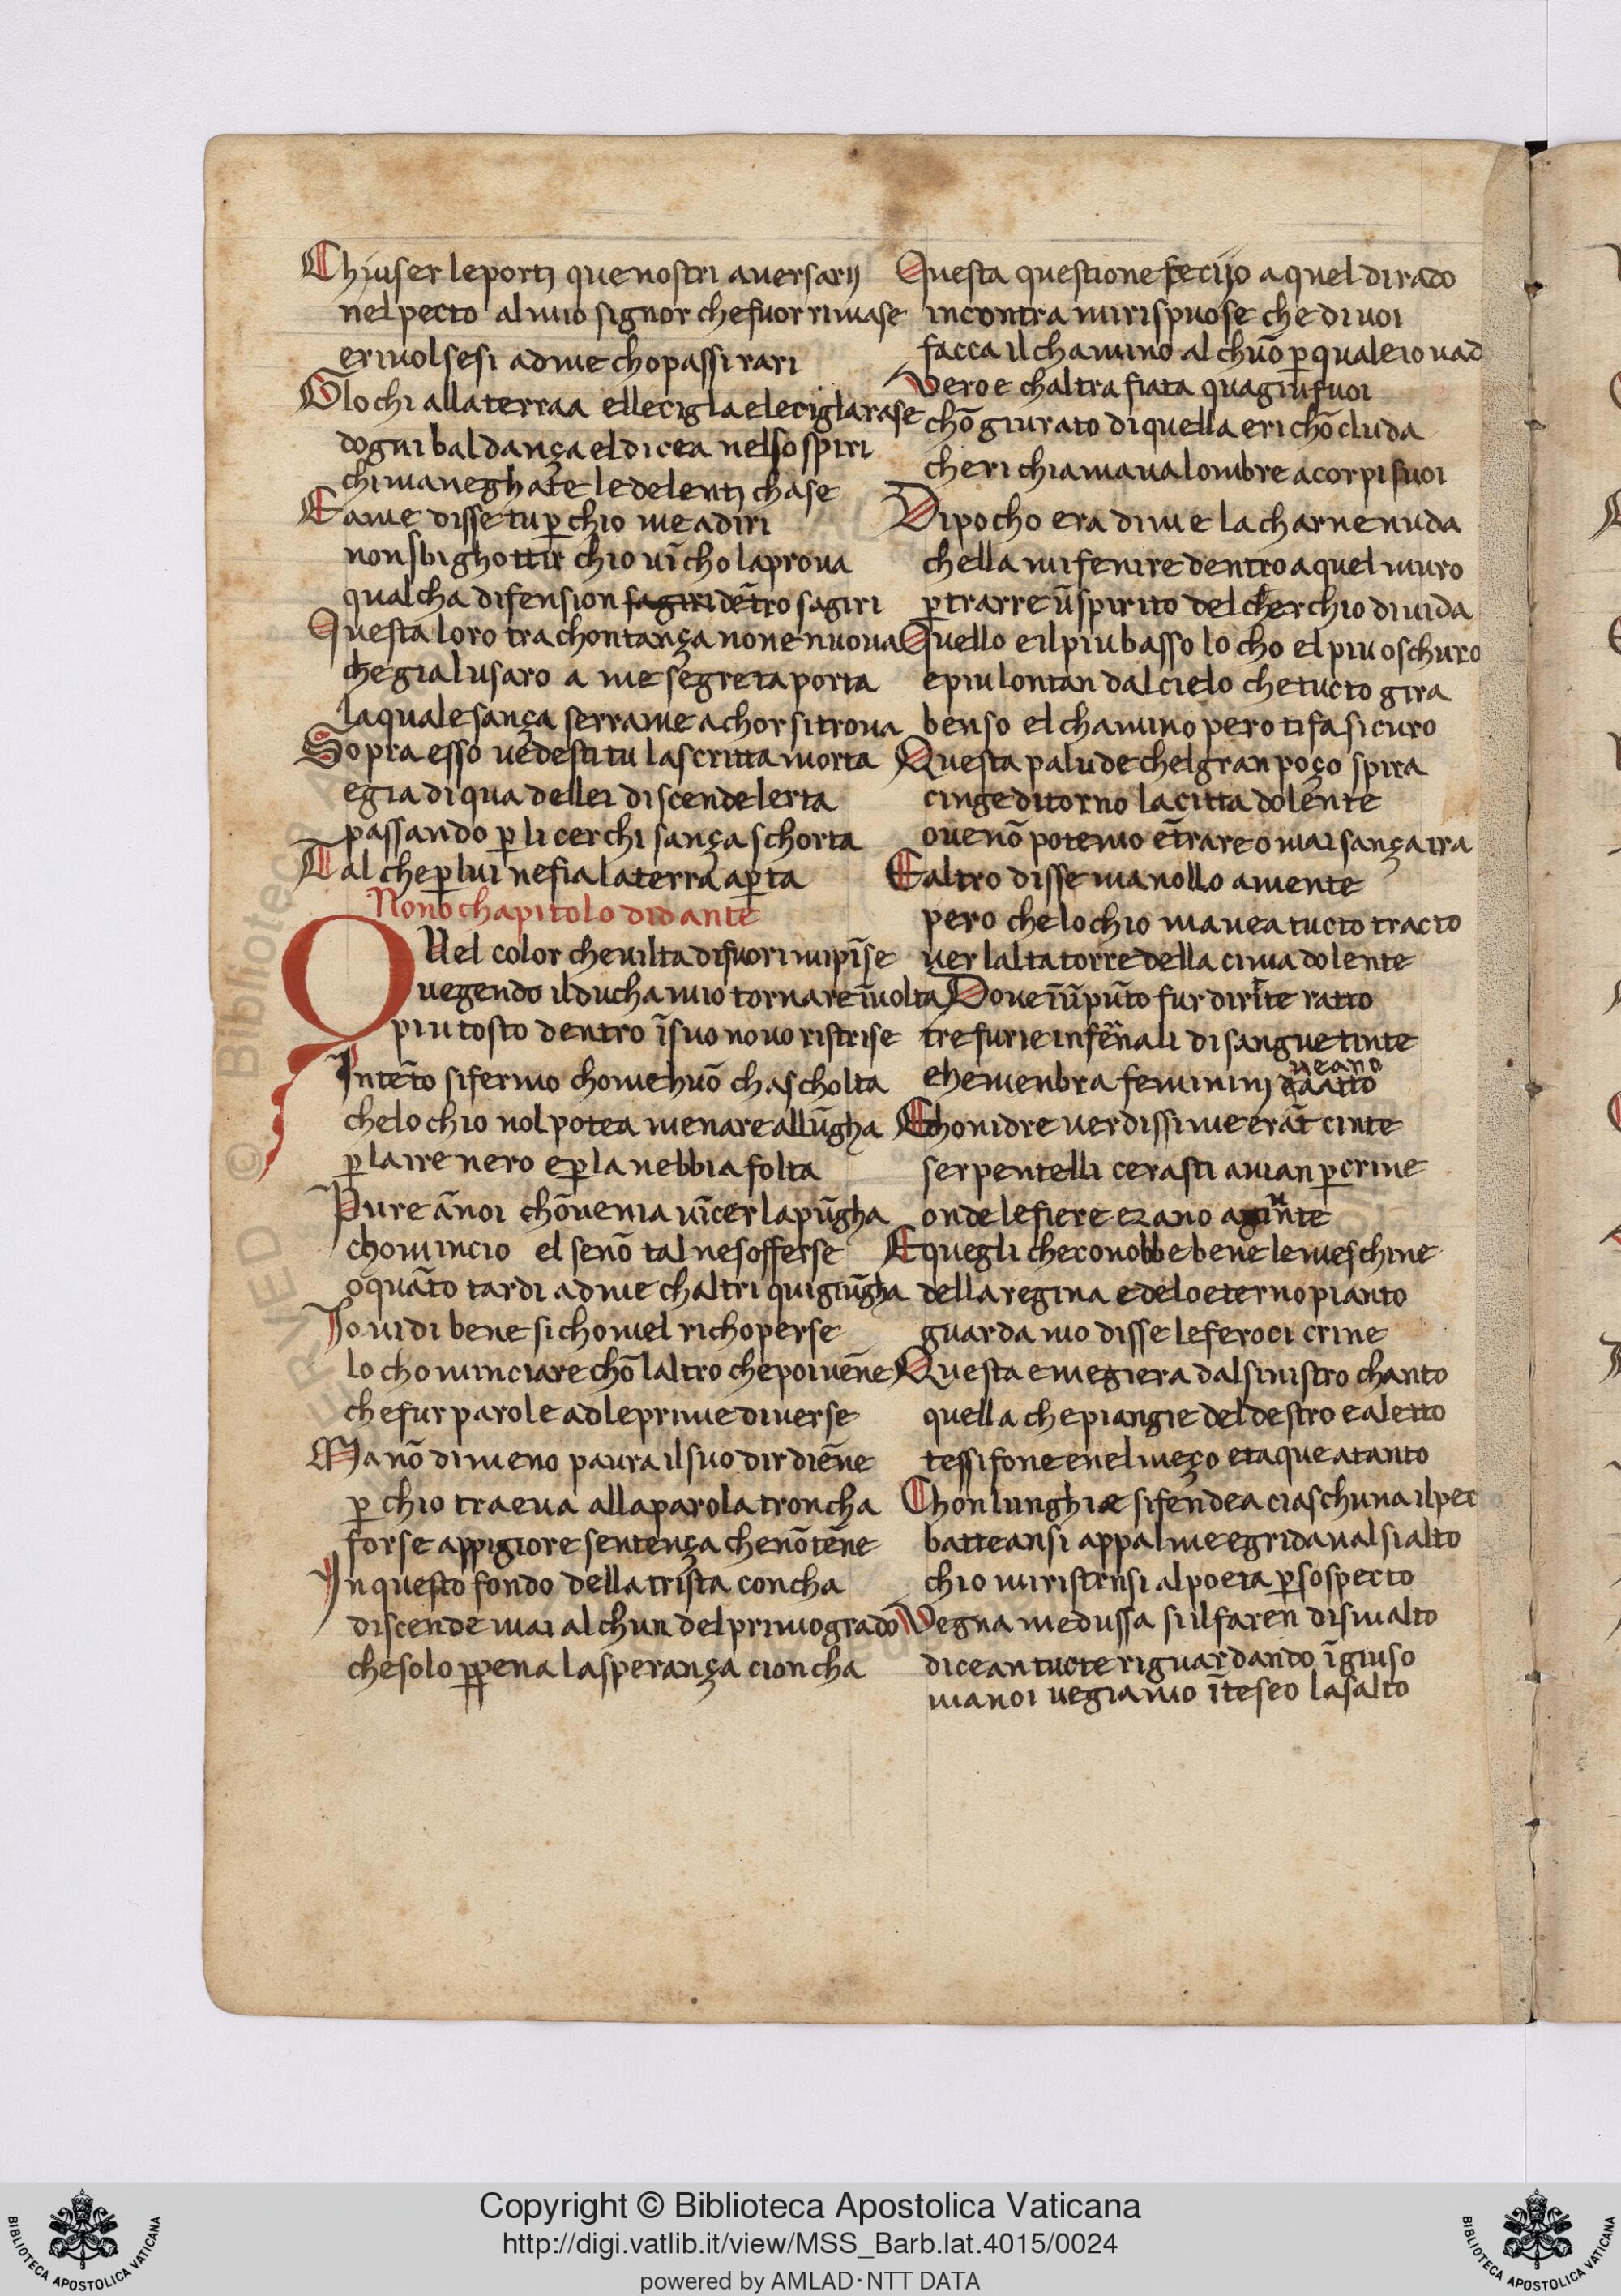 Chiuser le portj que nostri aversarij
nel pecto al mio signor che fuor rimase
e rivolsesi ad me cho passi rari
Glochi alla terra a elle cigla ele cigla rase
dogni baldança el dicea nelso spiri
chi ma neghate le delentj chase
E a me disse tu p̱ chio me adiri
non sbighottir chio vĩcho la prova
qual cha difension sagiri dẽtro sagiri
Questa loro trachontança none nuova
che gia lusaro a me segreta porta
la quale sança serrame achor si trova
Sopra esso vedesti tu la scritta morta
e gia di qua dellei discende lerta
passando p̱ li cerchi sança schorta
Tal che p̱ lui ne fia la terra ap̱ta
Nono chapitolo did ante
Quel color che vilta di fuori mi pĩse
vegendo il ducha mio tornare ĩ volta
piu tosto dentro ĩ suo novo ristrise
Intẽto si fermo chome huõ chascholta
che lochio nol potea menare allũgha
p̱ laire nero e p̱ la nebbia folta
Pure ãnoi chõvenia vĩcer la pũgha
chomincio el se nõ tal ne sofferse
o quãto tardi ad me chaltri qui giũgha
Io vidi bene si chomel richoperse
lo chominciare chõ laltro che poi vẽne
che fur parole ad le prime diverse
Ma nõ di meno paura il suo dir diẽne
p̱ chio traeva alla parola troncha
forse appigiore sentença che nõ tẽne
In questo fondo della trista concha
discende mai alchun del primo grado
che solo p̱ pena la sperança cioncha
Questa questione fecijo a quel di rado
incontra mi rispuose che di voi
facca il chamino alchuõ p̱ quale io vad
Vero e chaltra fiata qua giu fuoi
chõgiurato di quella eri chõ cluda
cheri chiamava lombre a corpi suoi
Di pocho era di me la charne nuda
chella mi fe nire dentro a quel muro
p̱ trarre ũ spirito del cherchio di vida
Quello e il piu basso locho el piu oschuro
e piu lontan dal cielo che tucto gira
ben so el chamino pero ti fa sicuro
Questa palude chel gran poço spira
cinge ditorno la citta dolente
ove nõ potemo ẽtrare omai sança ira
E altro disse ma nollo a mente
pero che lochio mavea tucto tracto
ver lalta torre della cima dolente
Dove ĩ ũ pũto fur dirĩte ratto
tre furie infẽnali di sangue tinte
che menbra femininj veano a atto
E chon idre verdissime erãt cinte
serpentelli cerasti avian p̱ crine
onde le fiere erano aginnte
E quegli che conobbe bene le meschine
della regina e de lo eterno pianto
guarda mo disse le feroci crine
Questa e megiera dal sinistro chanto
quella che piangie del destro e aletto
tessifone e nel meço e taque a tanto
Chon lunghiæ si fendea ciaschuna il pec
batteansi appalme e gridaval si alto
chio mi ristrnsi al poeta p̱ sospecto
Vegna medussa si il faren di smalto
dicean tucte riguardando ĩ giuso
ma noi vegiamo ĩ teseo lasalto
RESERVED © Biblioteca
BIBLIOTECA APOSTOLICA VATICANA
Copyright © Biblioteca Apostolica Vaticana
http://digi.vatlib.it/view/MSS_Barb.lat.4015/0024
powered by AMLAD·NTT DATA
BIBLIOTECA APOSTOLICA VATICANA